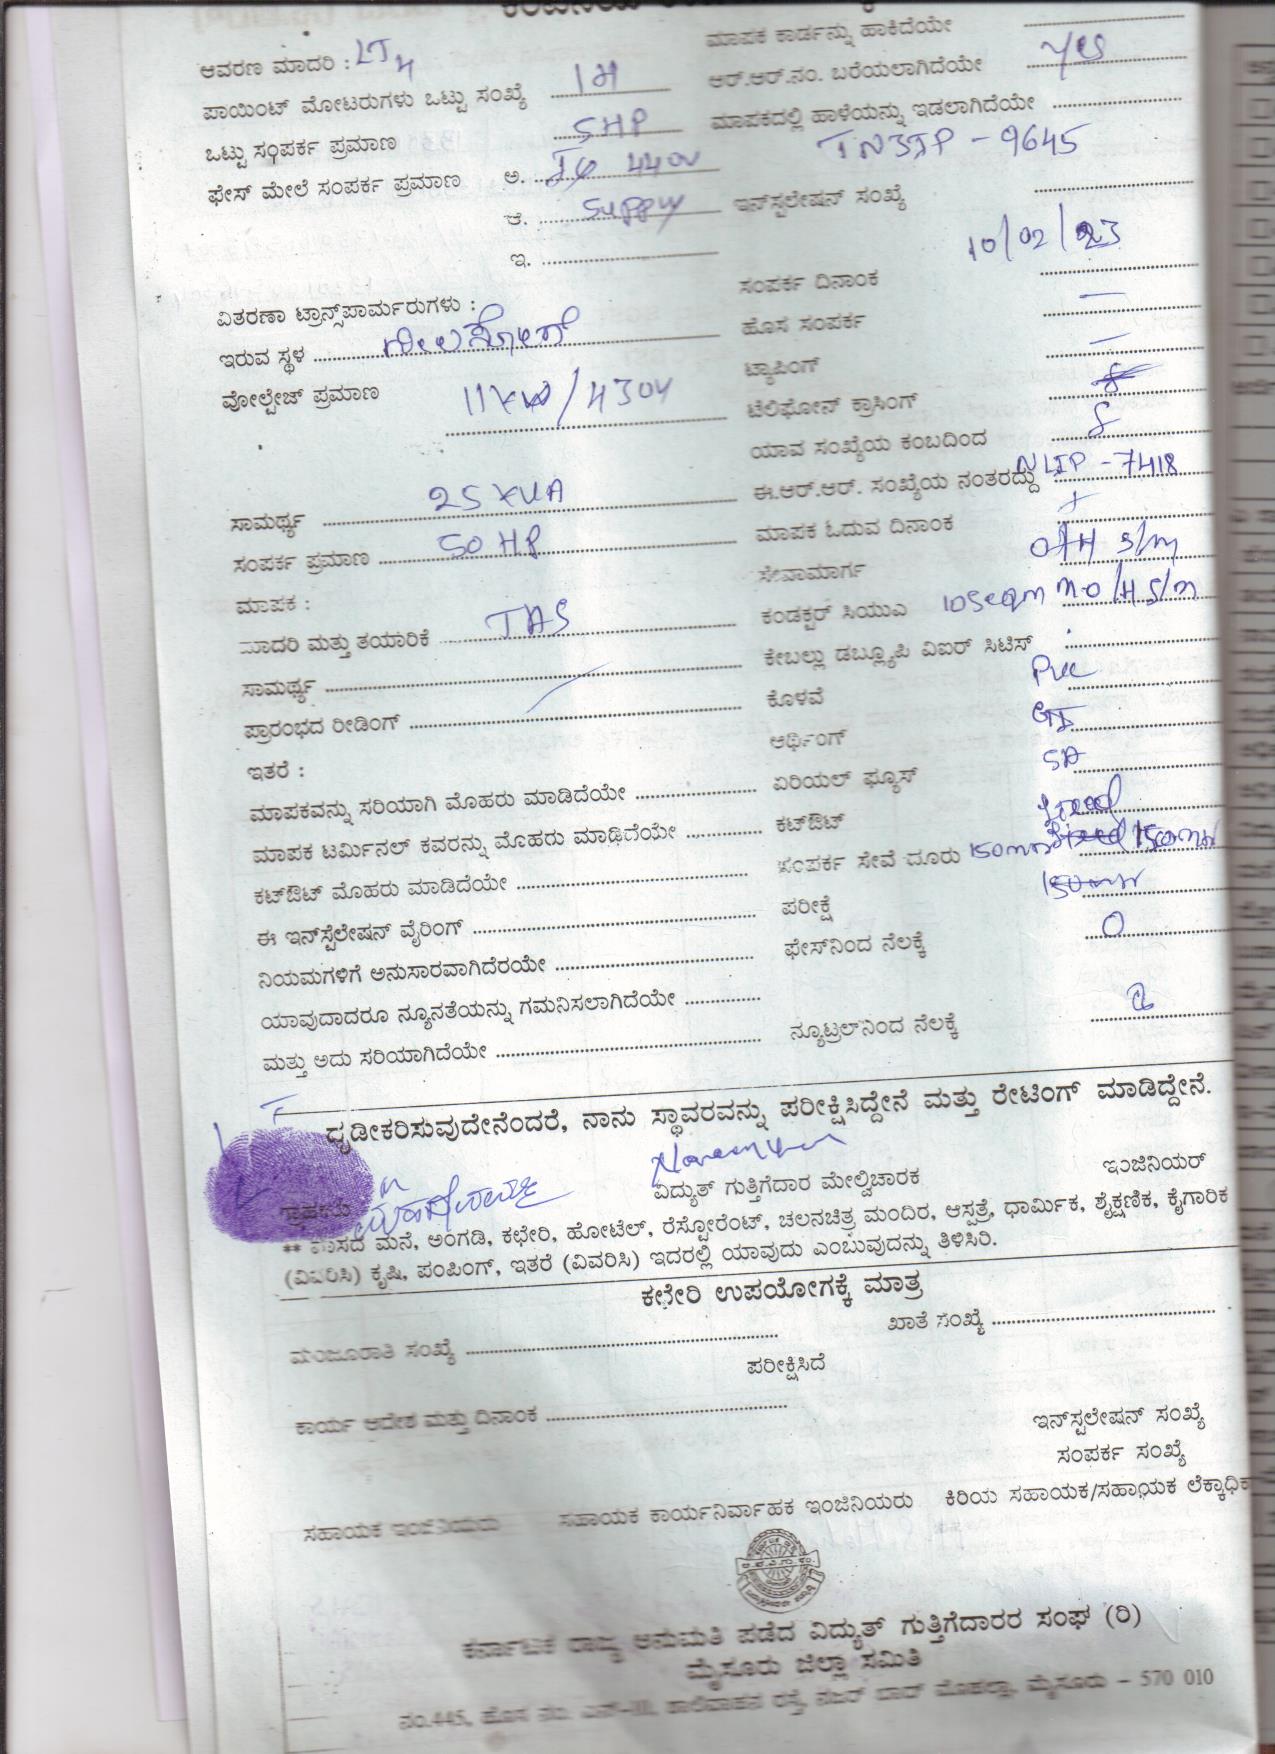 ಆವರಣ ಮಾದರಿ : LT4
ಪಾಯಿಂಟ್ ಮೋಟರುಗಳು ಒಟ್ಟು ಸಂಖ್ಯೆ 1M
ಒಟ್ಟು ಸಂಪರ್ಕ ಪ್ರಮಾಣ 5HP
ಫೇಸ್ ಮೇಲೆ ಸಂಪರ್ಕ ಪ್ರಮಾಣ ಅ. 440V
ಆ. Supply
ಇ.
ವಿತರಣಾ ಟ್ರಾನ್ಸ್‌ಪಾರ್ಮರುಗಳು :
ಇರುವ ಸ್ಥಳ
ವೋಲ್ಟೇಜ್ ಪ್ರಮಾಣ 11KV/430V
ಸಾಮರ್ಥ್ಯ 25 KVA
ಸಂಪರ್ಕ ಪ್ರಮಾಣ 50 HP
ಮಾಪಕ :
ಮಾದರಿ ಮತ್ತು ತಯಾರಿಕೆ
ಸಾಮರ್ಥ್ಯ
ಪ್ರಾರಂಭದ ರೀಡಿಂಗ್
ಇತರೆ :
ಮಾಪಕವನ್ನು ಸರಿಯಾಗಿ ಮೊಹರು ಮಾಡಿದೆಯೇ
ಮಾಪಕ ಟರ್ಮಿನಲ್ ಕವರನ್ನು ಮೊಹರು ಮಾಡಿದೆಯೇ
ಕಟ್‌ಔಟ್ ಮೊಹರು ಮಾಡಿದೆಯೇ
ಈ ಇನ್‌ಸ್ಟೆಲೇಷನ್ ವೈರಿಂಗ್
ನಿಯಮಗಳಿಗೆ ಅನುಸಾರವಾಗಿದೆರಯೇ
ಯಾವುದಾದರೂ ನ್ಯೂನತೆಯನ್ನು ಗಮನಿಸಲಾಗಿದೆಯೇ
ಮತ್ತು ಅದು ಸರಿಯಾಗಿದೆಯೇ
ಮಾಪಕ ಕಾರ್ಡನ್ನು ಹಾಕಿದೆಯೇ
ಆರ್.ಆರ್.ನಂ. ಬರೆಯಲಾಗಿದೆಯೇ yes
ಮಾಪಕದಲ್ಲಿ ಹಾಳೆಯನ್ನು ಇಡಲಾಗಿದೆಯೇ
ಇನ್‌ಸ್ಟಲೇಷನ್ ಸಂಖ್ಯೆ
ಸಂಪರ್ಕ ದಿನಾಂಕ 10/02/23
ಹೊಸ ಸಂಪರ್ಕ –
ಟ್ಯಾಪಿಂಗ್ –
ಟೆಲಿಫೋನ್ ಕ್ರಾಸಿಂಗ್
ಯಾವ ಸಂಖ್ಯೆಯ ಕಂಬದಿಂದ 8
ಈ.ಆರ್.ಆರ್. ಸಂಖ್ಯೆಯ ನಂತರದ್ದು NLIP - 7418
ಮಾಪಕ ಓದುವ ದಿನಾಂಕ
ಸೇವಾಮಾರ್ಗ O/H S/m
ಕಂಡಕ್ಟರ್ ಸಿಯುಎ
ಕೇಬಲ್ಲು ಡಬ್ಲ್ಯೂಪಿ ವಿಐರ್ ಸಿಟಿಸ್
ಕೊಳವೆ PVC
ಅರ್ಥಿಂಗ್ GI
ಏರಿಯಲ್ ಫ್ಯೂಸ್ 5A
ಕಟ್‌ಔಟ್ fixed
ಸಂಪರ್ಕ ಸೇವೆ ದೂರು
ಪರೀಕ್ಷೆ
ಫೇಸ್‌ನಿಂದ ನೆಲಕ್ಕೆ 0
ನ್ಯೂಟ್ರಲ್‌ನಿಂದ ನೆಲಕ್ಕೆ
ಧೃಡೀಕರಿಸುವುದೇನೆಂದರೆ, ನಾನು ಸ್ಥಾವರವನ್ನು ಪರೀಕ್ಷಿಸಿದ್ದೇನೆ ಮತ್ತು ರೇಟಿಂಗ್ ಮಾಡಿದ್ದೇನೆ.
ವಿದ್ಯುತ್ ಗುತ್ತಿಗೆದಾರ ಮೇಲ್ವಿಚಾರಕ ಇಂಜಿನಿಯರ್
ಗ್ರಾಹಕರು
** ವಾಸದ ಮನೆ, ಅಂಗಡಿ, ಕಛೇರಿ, ಹೋಟೆಲ್, ರೆಸ್ಟೋರೆಂಟ್, ಚಲನಚಿತ್ರ ಮಂದಿರ, ಆಸ್ಪತ್ರೆ, ಧಾರ್ಮಿಕ, ಶೈಕ್ಷಣಿಕ, ಕೈಗಾರಿಕ
(ವಿವರಿಸಿ) ಕೃಷಿ, ಪಂಪಿಂಗ್, ಇತರೆ (ವಿವರಿಸಿ) ಇದರಲ್ಲಿ ಯಾವುದು ಎಂಬುವುದನ್ನು ತಿಳಿಸಿರಿ.
ಕಛೇರಿ ಉಪಯೋಗಕ್ಕೆ ಮಾತ್ರ
ಮಂಜೂರಾತಿ ಸಂಖ್ಯೆ ಖಾತೆ ಸಂಖ್ಯೆ
ಪರೀಕ್ಷಿಸಿದೆ
ಕಾರ್ಯ ಆದೇಶ ಮತ್ತು ದಿನಾಂಕ
ಇನ್‌ಸ್ಟಲೇಷನ್ ಸಂಖ್ಯೆ
ಸಂಪರ್ಕ ಸಂಖ್ಯೆ
ಸಹಾಯಕ ಇಂಜಿನಿಯರು ಸಹಾಯಕ ಕಾರ್ಯನಿರ್ವಾಹಕ ಇಂಜಿನಿಯರು ಕಿರಿಯ ಸಹಾಯಕ/ಸಹಾಯಕ ಲೆಕ್ಕಾಧಿಕಾ
ಕರ್ನಾಟಕ ರಾಜ್ಯ ಅನುಮತಿ ಪಡೆದ ವಿದ್ಯುತ್ ಗುತ್ತಿಗೆದಾರರ ಸಂಘ (ರಿ)
ಮೈಸೂರು ಜಿಲ್ಲಾ ಸಮಿತಿ
ನಂ.445, ಹೊಸ ನಂ. ಶಾಲಿವಾಹನ ರಸ್ತೆ, ನಜರ್ ಬಾದ್ ಮೊಹಲ್ಲಾ, ಮೈಸೂರು – 570 010